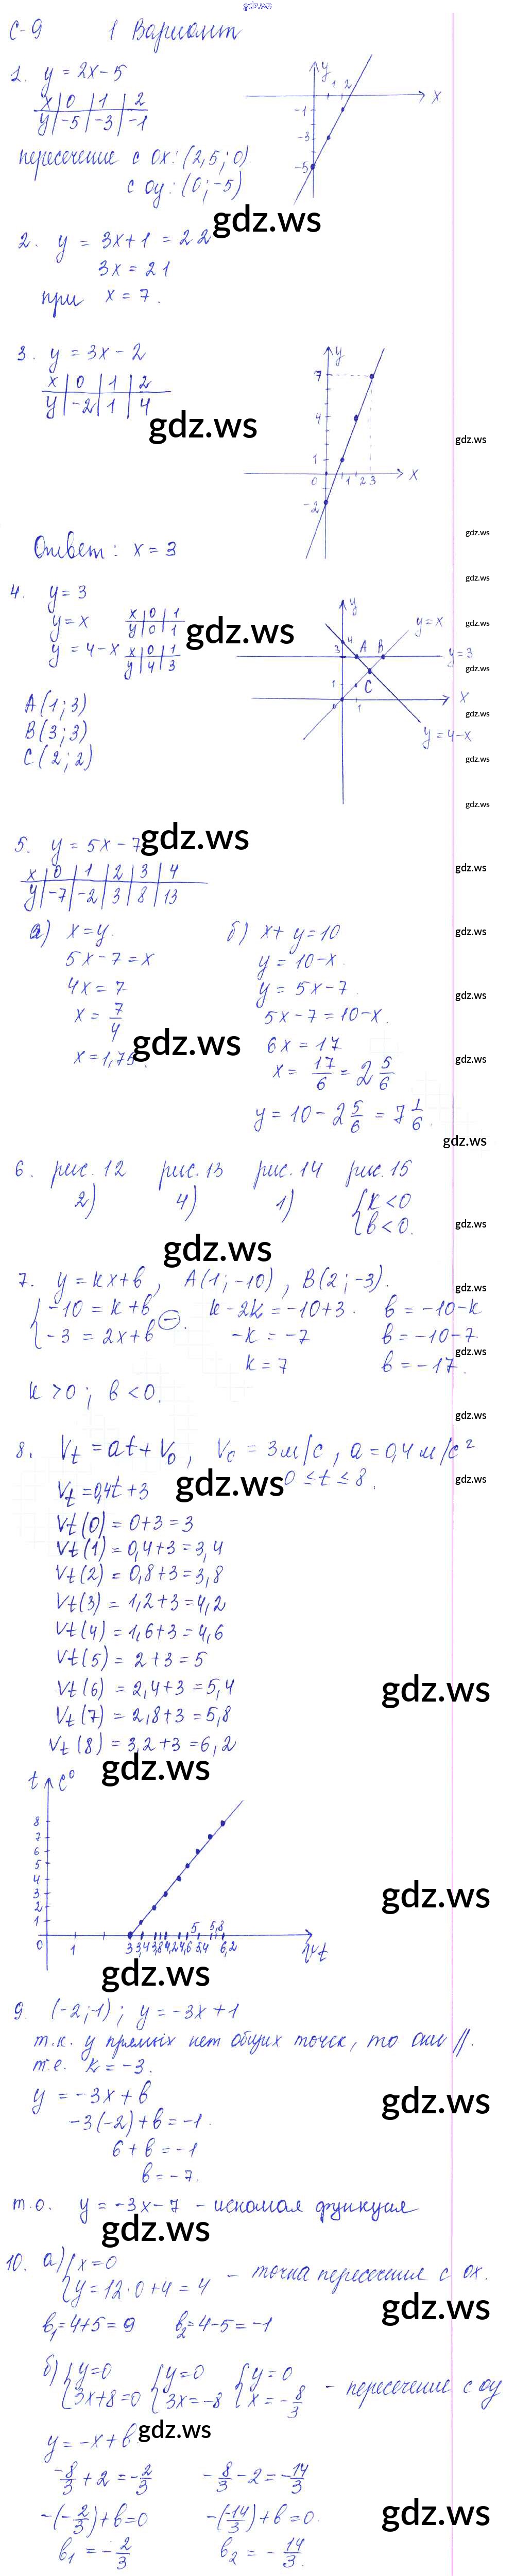 gdz.ws
С-9 1 Вариант
1. y = 2x - 5
x | 0 | 1 | 2
y | -5 | -3 | -1
пересечение с ox: (2,5; 0)
с oy: (0; -5)
y 1 2 x -1 -3 -5
gdz.ws
2. y = 3x + 1 = 22
3x = 21
при x = 7.
3. y = 3x - 2
x | 0 | 1 | 2
y | -2 | 1 | 4
y 7 4 1 0 1 2 3 x -2
gdz.ws
gdz.ws
gdz.ws
Ответ: x = 3
gdz.ws
4. y = 3
y = x x | 0 | 1
y | 0 | 1
y = 4 - x x | 0 | 1
y | 4 | 3
gdz.ws
gdz.ws
y 4 A B y = x
3 y = 3
gdz.ws
1 C
0 1 x
y = 4 - x
A (1; 3)
B (3; 3)
C (2; 2)
gdz.ws
gdz.ws
gdz.ws
5. y = 5x - 7
gdz.ws
gdz.ws
x | 0 | 1 | 2 | 3 | 4
y | -7 | -2 | 3 | 8 | 13
а) x = y.
5x - 7 = x
4x = 7
x = 7/4
x = 1,75.
gdz.ws
б) x + y = 10
y = 10 - x.
y = 5x - 7.
5x - 7 = 10 - x.
6x = 17
x = 17/6 = 2 5/6
y = 10 - 2 5/6 = 7 1/6.
gdz.ws
gdz.ws
gdz.ws
gdz.ws
6. рис. 12 рис. 13 рис. 14 рис. 15
2) 4) 1) { k < 0
b < 0.
gdz.ws
gdz.ws
7. y = kx + b, A(1; -10), B(2; -3).
gdz.ws
{ -10 = k + b
-3 = 2x + b (-).
k - 2k = -10 + 3.
-k = -7
k = 7
b = -10 - k
b = -10 - 7
b = -17.
gdz.ws
k > 0; b < 0.
gdz.ws
8. Vt = at + V0, V0 = 3 м/с, a = 0,4 м/с²
gdz.ws
0 ≤ t ≤ 8.
gdz.ws
Vt = 0,4t + 3
Vt(0) = 0 + 3 = 3
Vt(1) = 0,4 + 3 = 3,4
Vt(2) = 0,8 + 3 = 3,8
Vt(3) = 1,2 + 3 = 4,2
Vt(4) = 1,6 + 3 = 4,6
Vt(5) = 2 + 3 = 5
Vt(6) = 2,4 + 3 = 5,4
gdz.ws
Vt(7) = 2,8 + 3 = 5,8
Vt(8) = 3,2 + 3 = 6,2
gdz.ws
8
7
6
5
4
3
2
1
gdz.ws
5 5,8
0 1 3 3,4 3,8 4,2 4,6 5,4 6,2
gdz.ws
9. (-2; -1); y = -3x + 1
т.к. у прямых нет общих точек, то они //.
т.е. k = -3.
y = -3x + b
gdz.ws
-3(-2) + b = -1.
6 + b = -1
b = -7.
т.о. y = -3x - 7 - искомая функция
gdz.ws
10. а) { x = 0
y = 12·0 + 4 = 4 - точка пересечения с ox.
gdz.ws
b1 = 4 + 5 = 9 b2 = 4 - 5 = -1
б) { y = 0
3x + 8 = 0 { y = 0
3x = -8 { y = 0
x = -8/3 - пересечение с oy
gdz.ws
y = -x + b
-8/3 + 2 = -2/3 -8/3 - 2 = -14/3
gdz.ws
-(-2/3) + b = 0 -(-14/3) + b = 0.
b1 = -2/3 b2 = -14/3.